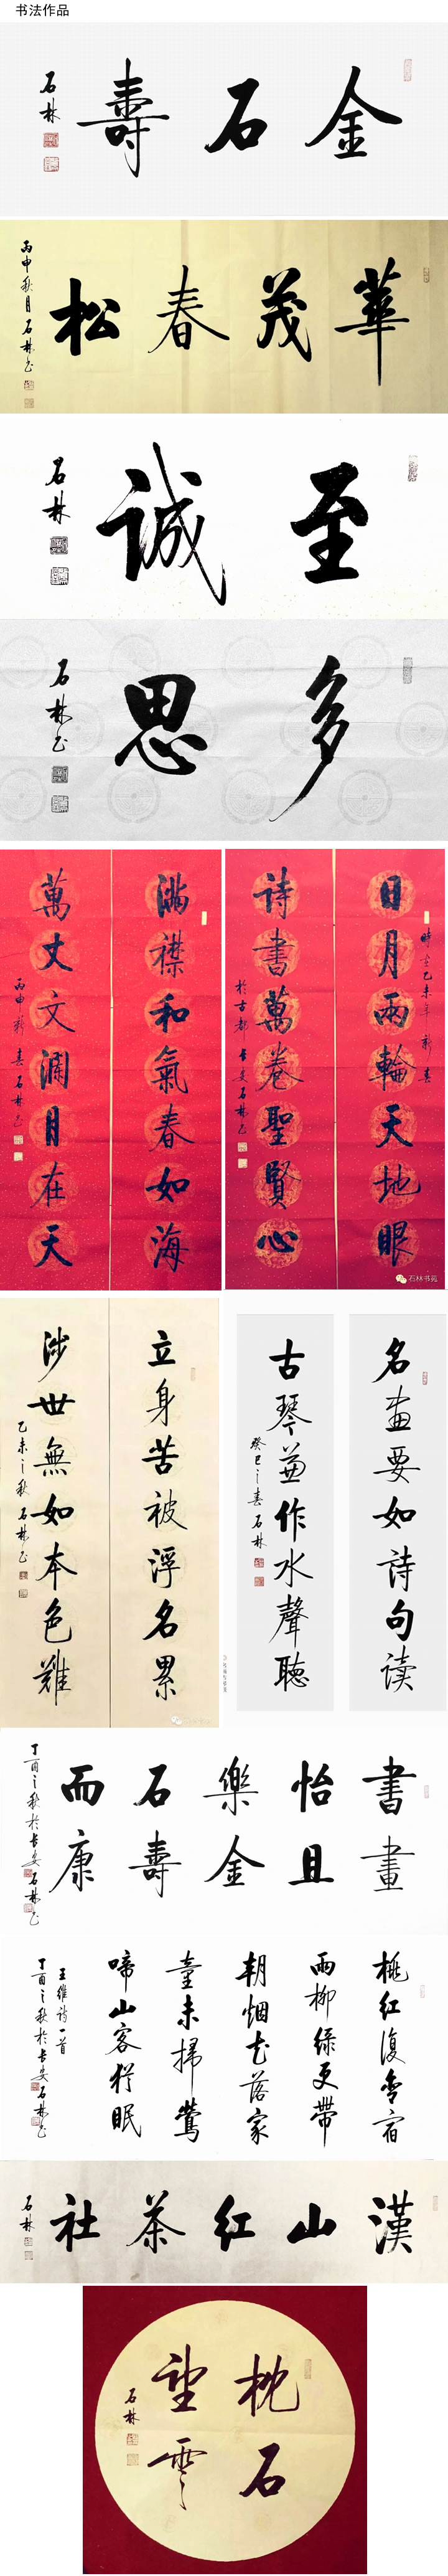 书法作品
金石壽
石林
華茂春松
丙申秋月石林書
至誠
石林
多思
石林書
满襟和氣春如海
萬丈文澜月在天
丙申新春石林書
時宜乙未年新春
日月兩輪天地眼
詩書萬卷聖賢心
於古都長安石林書
石林书苑
立身苦被浮名累
涉世無如本色難
乙未之秋石林書
名畫要如詩句读
古琴兼作水聲聽
癸巳之春石林
書畫
怡且
樂金
石壽
而康
丁酉之秋於长安石林書
桃红復含宿
雨柳绿更带
朝烟花落家
童未掃鶯
啼山客猶眠
王维诗一首
丁酉之秋於长安石林書
漢山红茶社
石林
枕石
望雲
石林